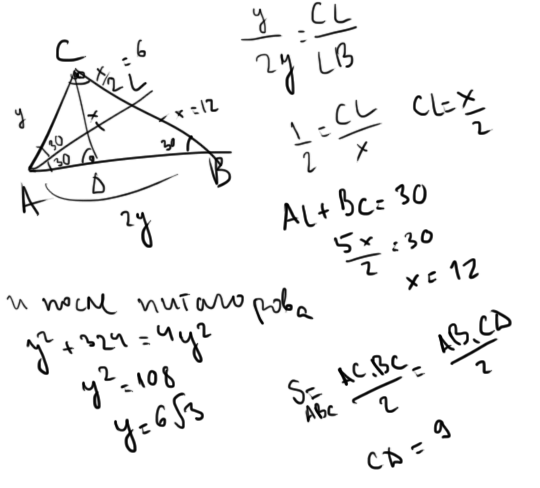 y/2y = CL/LB
C
x/2 = 6
L
y
x
x = 12
30
30
30
A
D
B
2y
1/2 = CL/x
CL = x/2
AL + BC = 30
5x/2 = 30
x = 12
и после питагорова
y² + 324 = 4y²
y² = 108
y = 6√3
S ABC = AC.BC/2 = AB.CD/2
CD = 9